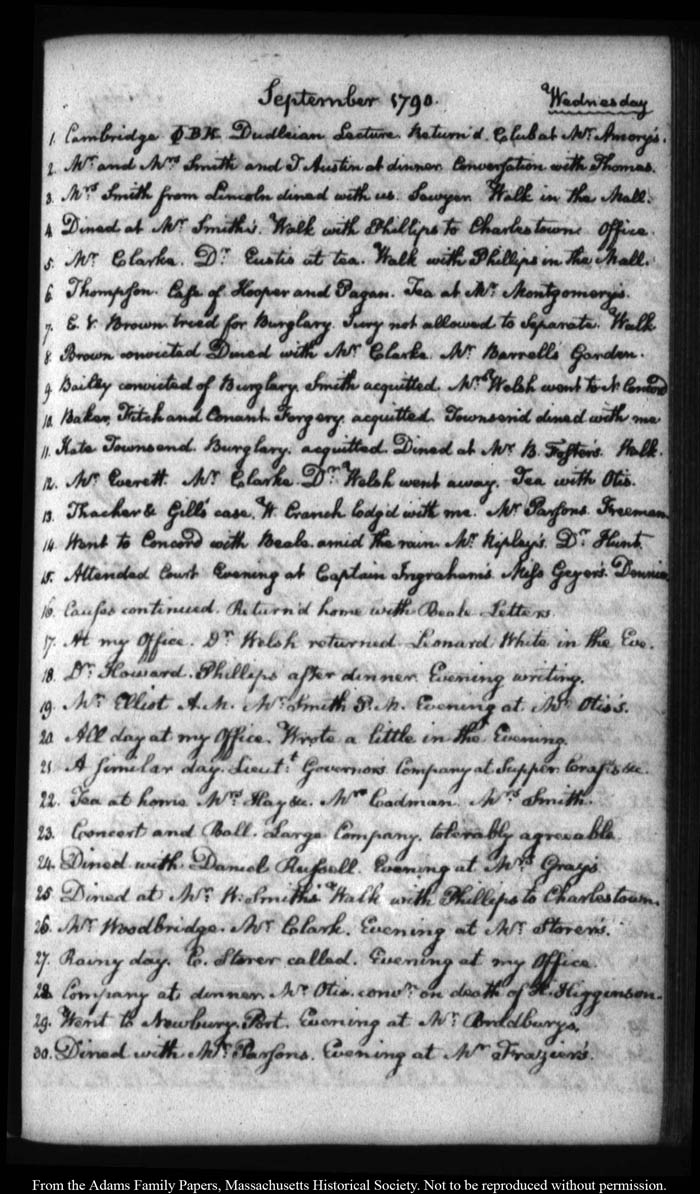 September 1790. Wednesday
1. Cambridge ΦBK. Dudleian Lecture. Return'd. Club at Mr. Amory's.
2. Mr. and Mrs. Smith and J Austin at dinner. Conversation with Thomas.
3. Mrs. Smith from Lincoln dined with us. Sawyer. Walk in the Mall.
4. Dined at Mr. Smith's. Walk with Phillips to Charlestown. Office.
5. Mr. Clarke. Dr. Eustis at tea. Walk with Phillips in the Mall.
6. Thompson. Case of Hooper and Pagan. Tea at Mr. Montgomery's.
7. E. V. Brown tried for Burglary. Jury not allowed to Separate. Walk
8. Brown convicted Dined with Mr. Clarke. Mr. Barrell's Garden.
9. Bailey convicted of Burglary. Smith acquitted. Mrs. Welsh went to N. Concord
10. Baker, Fitch and Conant. Forgery. acquitted. Townsend dined with me
11. Kate Townsend. Burglary. acquitted. Dined at Mr. B. Foster's. Walk.
12. Mr. Everett. Mr. Clarke. Dr. Welsh went away. Tea with Otis.
13. Thacher & Gill's case. W. Cranch lodg'd with me. Mr. Parsons. Freeman
14. Went to Concord with Beale amid the rain. Mr. Ripley's. Dr. Hunt.
15. Attended Court Evening at Captain Ingraham's. Miss Geyer's. Dennie
16. Causes continued. Return'd home with Beale. Letters.
17. At my Office. Dr. Welsh returned. Leonard White in the Eve.
18. Dr. Howard. Phillips after dinner. Evening writing.
19. Mr. Elliot A.M. Mr. Smith P.M. Evening at Mr. Otis's.
20. All day at my Office. Wrote a little in the Evening.
21 A similar day. Lieut.t Governor's Company at Supper. &c.
22. Tea at home Mrs. Hay &c. Mrs. Codman. Mrs. Smith.
23. Concert and Ball. Large Company. tolerably agreeable
24. Dined with Daniel Russell. Evening at Mrs. Gray's
25 Dined at Mr. W. Smith's Walk with Phillips to Charlestown.
26. Mr. Woodbridge. Mr. Clark. Evening at Mr. Storer's.
27. Rainy day. C. Storer called. Evening at my Office.
28 Company at dinner. Mr. Otis. convn. on death of H. Higginson.
29. Went to Newbury-Port. Evening at Mr. Bradbury's.
30. Dined with Mr. Parsons. Evening at Mr. Frazier's.
From the Adams Family Papers, Massachusetts Historical Society. Not to be reproduced without permission.